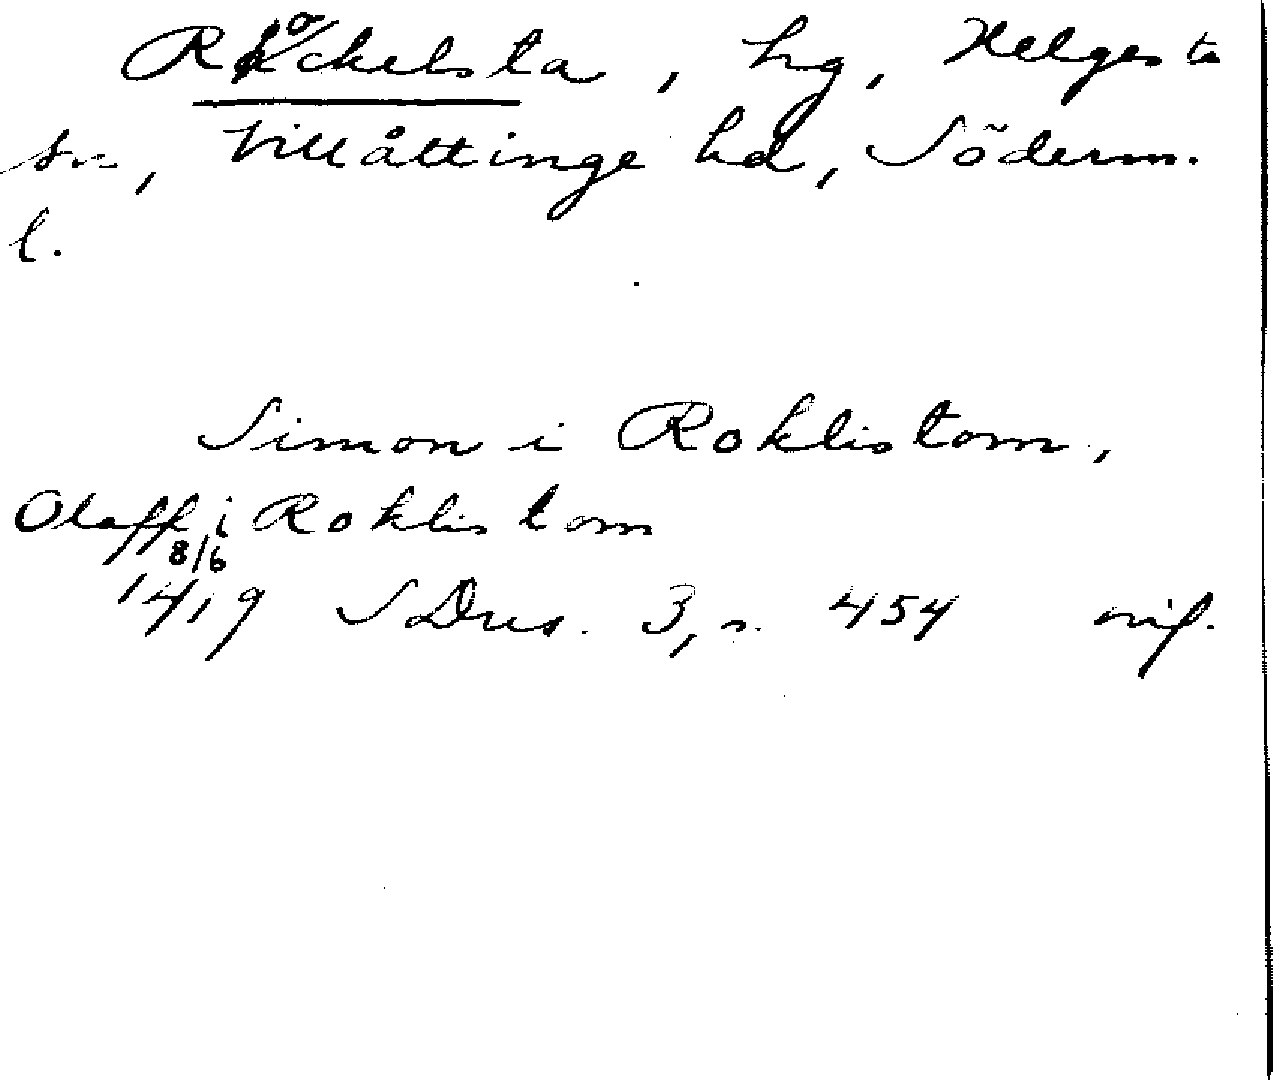 Rockelsta, hg, Helgesta
sn, Villåttinge hd, Söderm.
l.
Simon i Roklistom,
Olaff i Roklistom
8/6
1419 SDns. 3, s. 454 orig.